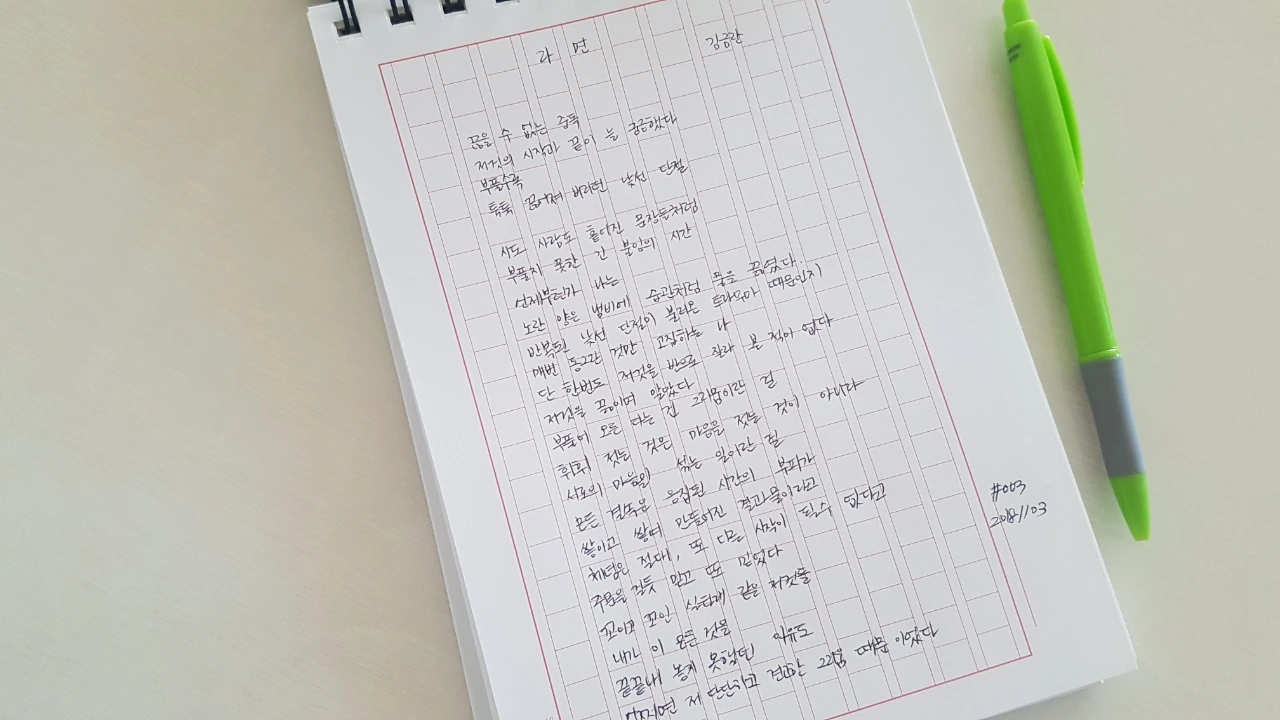 라면
김공란
끊을 수 없는 중독
저것의 시작과 끝이 늘 궁금했다
부풀수록
툭툭 끊어져 버리던 낯선 단절
시도 사람도 흩어진 문장들처럼
부풀지 못한 긴 불임의 시간
언제부턴가 나는
노란 양은 냄비에 습관처럼 물을 끓였다.
반복된 낯선 단절이 불러온 트라우마 때문인지
매번 둥그란 것만 고집하는 나
단 한번도 저것을 반으로 잘라 본 적이 없다
저것을 끓이며 알았다
부풀어 오른 다는 건 그리움이란 걸
휘휘 젓는 것은 마음을 젓는 것이 아니라
서로의 마음이 섞는 일이란 걸
모든 결속은 응집된 시간의 부피가
쌓이고 쌓여 만들어진 결과물이라고
체념은 절대, 또 다른 시작이 될수 없다고
주문을 걸듯 믿고 또 믿었다
꼬이고 꼬인 실타래 같은 저것들
내가 이 모든 것을
끝끝내 놓지 못했던 이유도
제 단단하고 견고한 그리움 때문 이었다
#003
2018/11/03